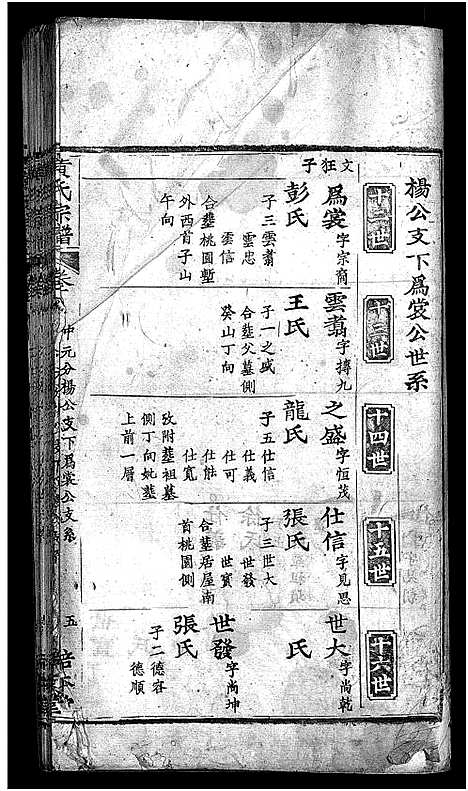 楊公支下爲裳公世系
十二世
十三世
十四世
十五世
十六世
文狂子
爲裳字宗裔
彭氏
子三雲翥
雲忠
雲信
合塟桃園塹
外酉首子山
午向
雲翥字摶九
王氏
子一之盛
合塟父墓側
癸山丁向
之盛字恒茂
龍氏
子五仕信
仕義
仕可
仕能
仕寬
攷附塟祖墓
側丁向妣塟
上前一層
仕信字見思
張氏
子三世大
世發
世寳
合塟居屋南
首桃園側
世大字尚乾
氏
世發字尚坤
張氏
子二德容
德順
黃氏宗譜
卷八
仲元分楊公支下爲裳公支系
五